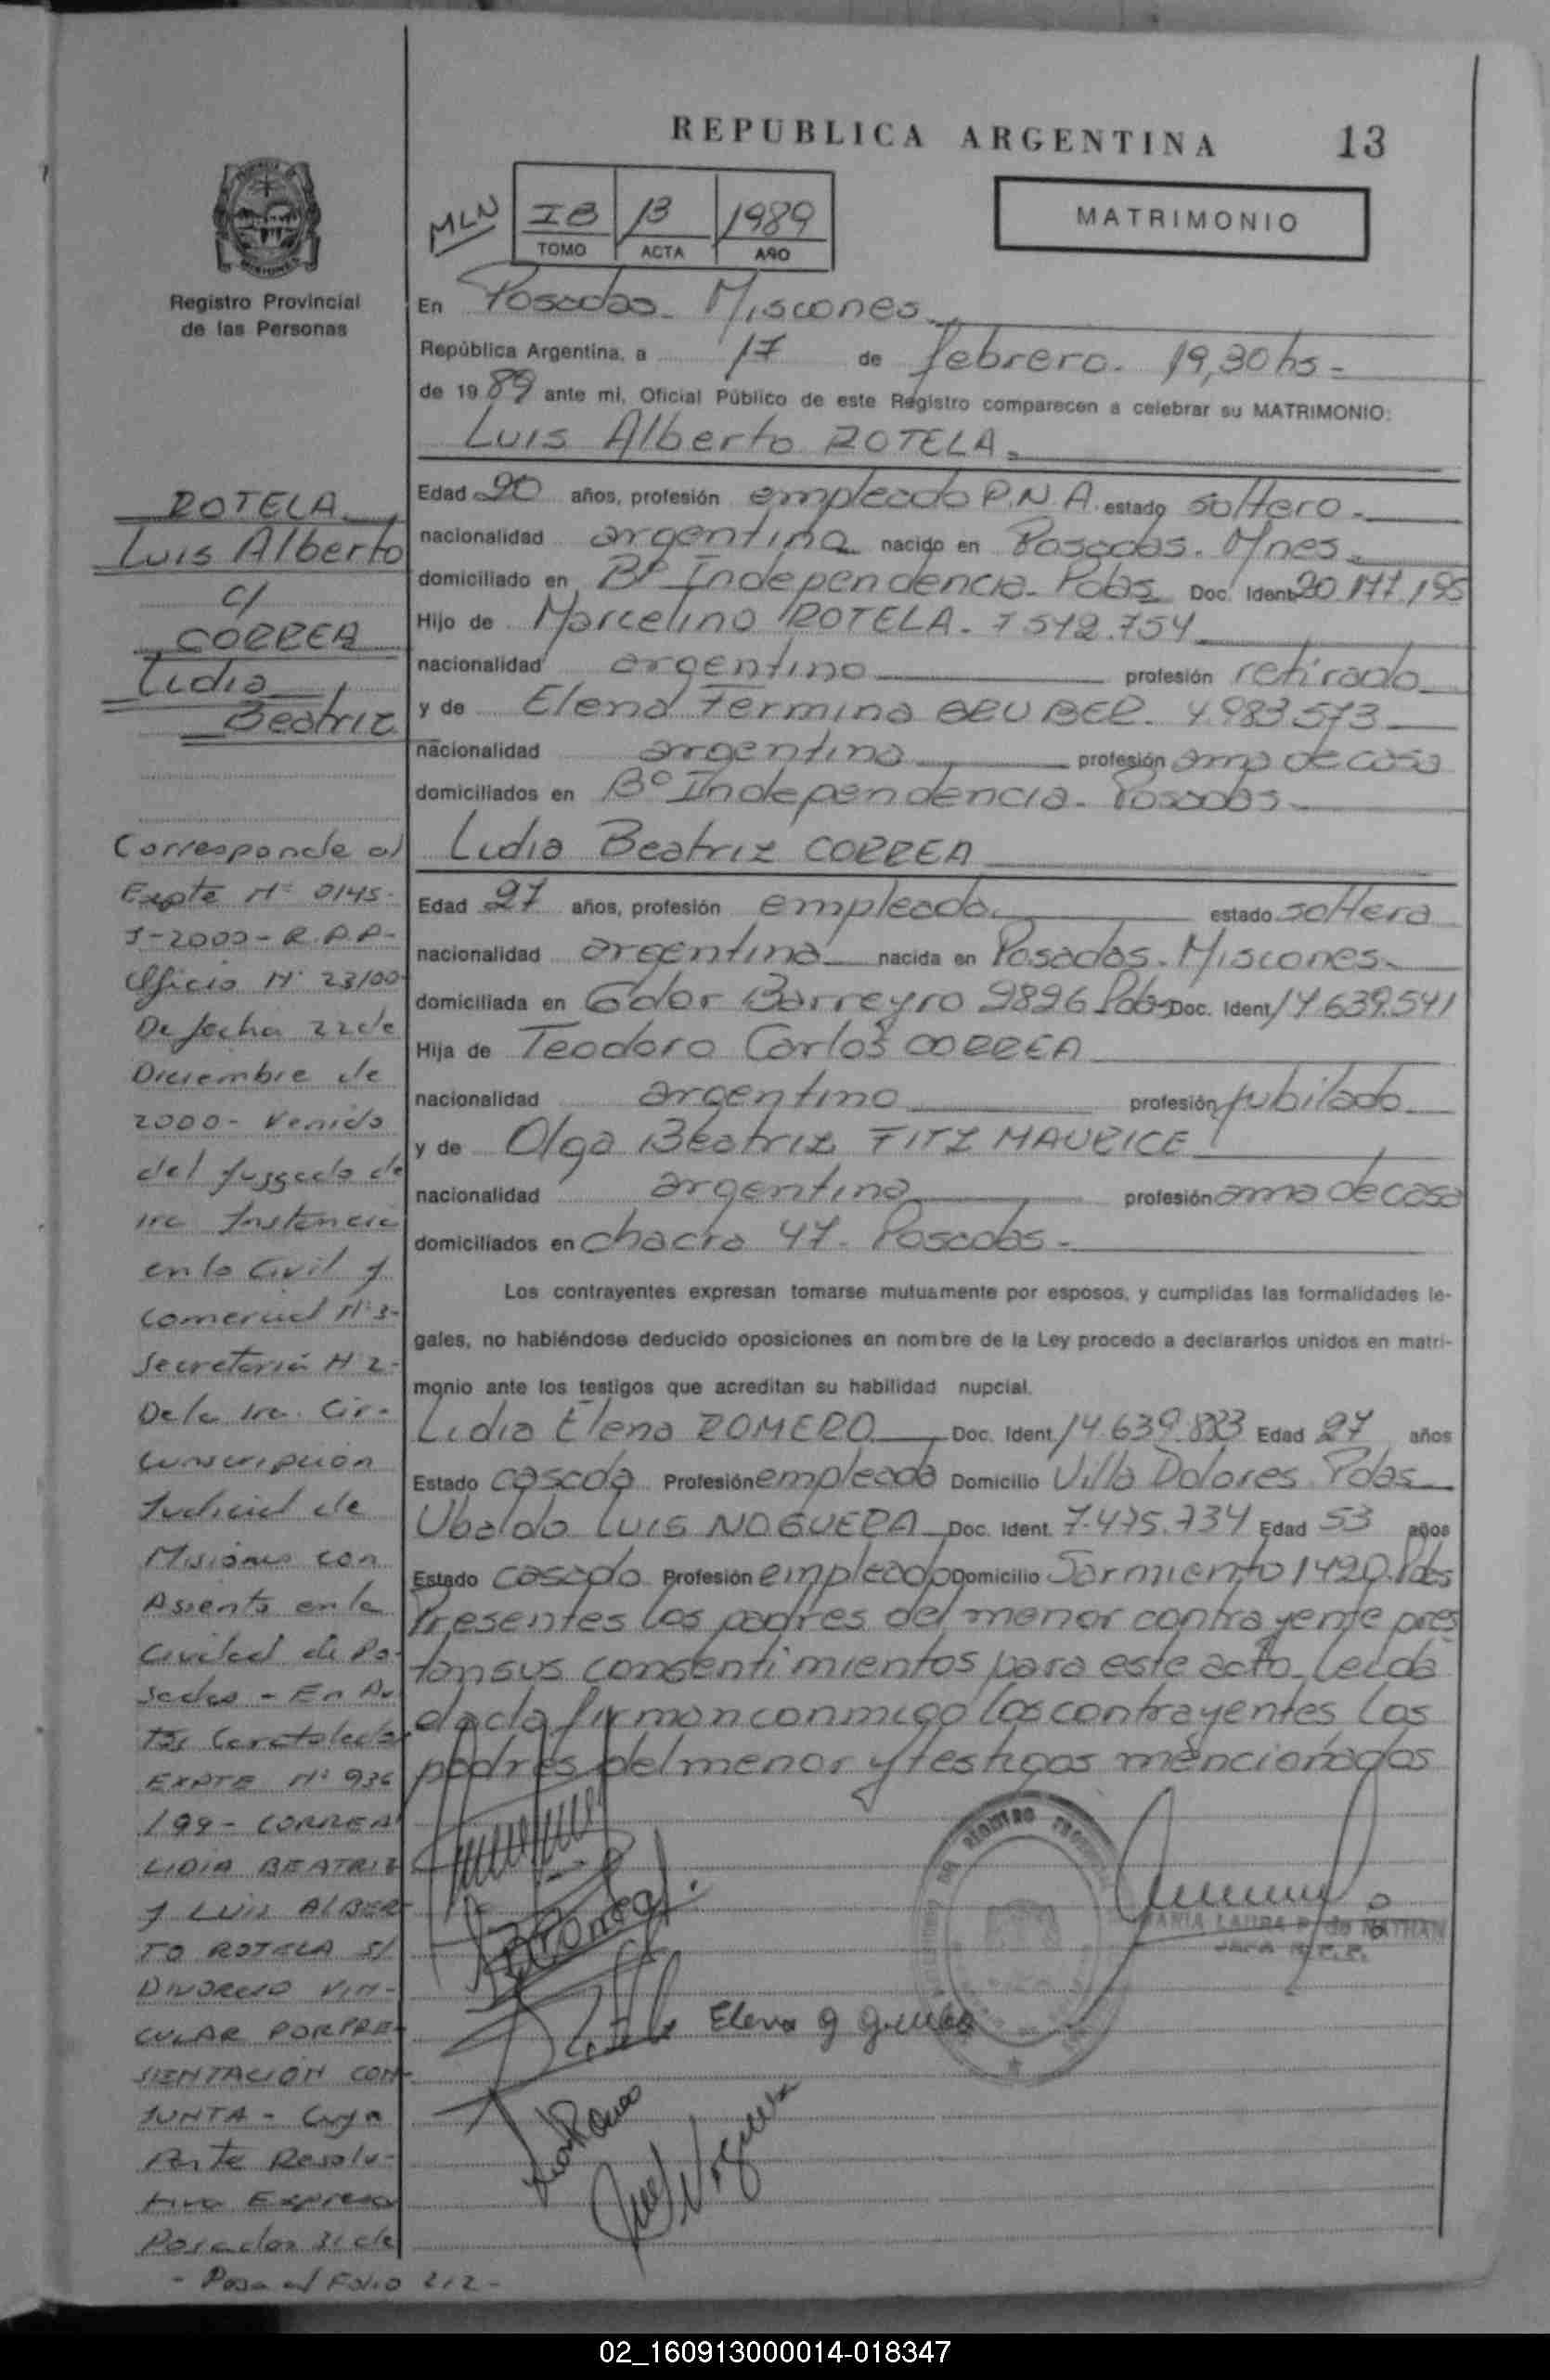 REPUBLICA ARGENTINA 13
MLN
IB 13 1989
TOMO ACTA AÑO
MATRIMONIO
Registro Provincial
de las Personas
En Posadas. Misiones
República Argentina, a 17 de febrero. 19,30 hs =
de 19 89 ante mi, Oficial Público de este Registro comparecen a celebrar su MATRIMONIO:
Luis Alberto ROTELA.=
Edad 20 años, profesión empleado P.N.A. estado soltero.
nacionalidad argentina nacido en Posadas. Mnes.
domiciliado en Bº Independencia. Pdas Doc. Ident. 20.177.195
Hijo de Marcelino ROTELA. 7.542.754
nacionalidad argentino profesión retirado
y de Elena Fermina GRUBER. 4.983.573
nacionalidad argentina profesión ama de casa
domiciliados en Bº Independencia. Posadas
Lidia Beatriz CORREA
Edad 27 años, profesión empleada. estado soltera
nacionalidad argentina nacida en Posadas. Misiones.
domiciliada en Gdor Barreyro 2826 Pdas Doc. Ident. 14.639.541
Hija de Teodoro Carlos CORREA
nacionalidad argentino profesión jubilado
y de Olga Beatriz FITZ MAURICE
nacionalidad argentina profesión ama de casa
domiciliados en chacra 47. Posadas.
Los contrayentes expresan tomarse mutuamente por esposos, y cumplidas las formalidades le-
gales, no habiéndose deducido oposiciones en nombre de la Ley procedo a declararlos unidos en matri-
monio ante los testigos que acreditan su habilidad nupcial.
Lidia Elena ROMERO Doc. Ident. 14.639.883 Edad 27 años
Estado casada Profesión empleada Domicilio Villa Dolores Pdas
Ubaldo LUIS NOGUERA Doc. Ident. 7.475.734 Edad 53 años
Estado casado Profesión empleado Domicilio Sarmiento 1420. Pdas
Presentes los padres del menor contrayente pres
tan sus consentimientos para este acto. Leida
el acta firman conmigo los contrayentes los
padres del menor y testigos mencionados
Elena g gruber
MARIA LAURA P. de NATHAN
JEFA R.P.P.
ROTELA
Luis Alberto
c/
CORREA
Lidia
Beatriz
Corresponde al
Expte Nº 0145-
J-2000-R.P.P-
Oficio Nº 23/00
De fecha 22 de
Diciembre de
2000- Venido
del Juzgado de
1ra Instancia
en lo Civil y
Comercial Nº 3-
Secretaría Nº 2-
De la 1ra. Cir-
cunscripción
Judicial de
Misiones con
Asiento en la
Ciudad de Po-
sadas - En Au
tos Caratulados
EXPTE Nº 936
/99- CORREA
LIDIA BEATRIZ
y LUIS ALBER
TO ROTELA S/
DIVORCIO VIN-
CULAR POR PRE-
SENTACIÓN CON-
JUNTA - Cuya
Parte Resolu-
tiva Expresa
Posadas 31 de
- Pasa al Folio 212-
02_160913000014-018347